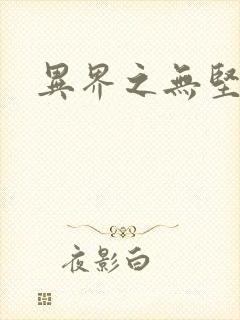 異界之無堅
夜影白